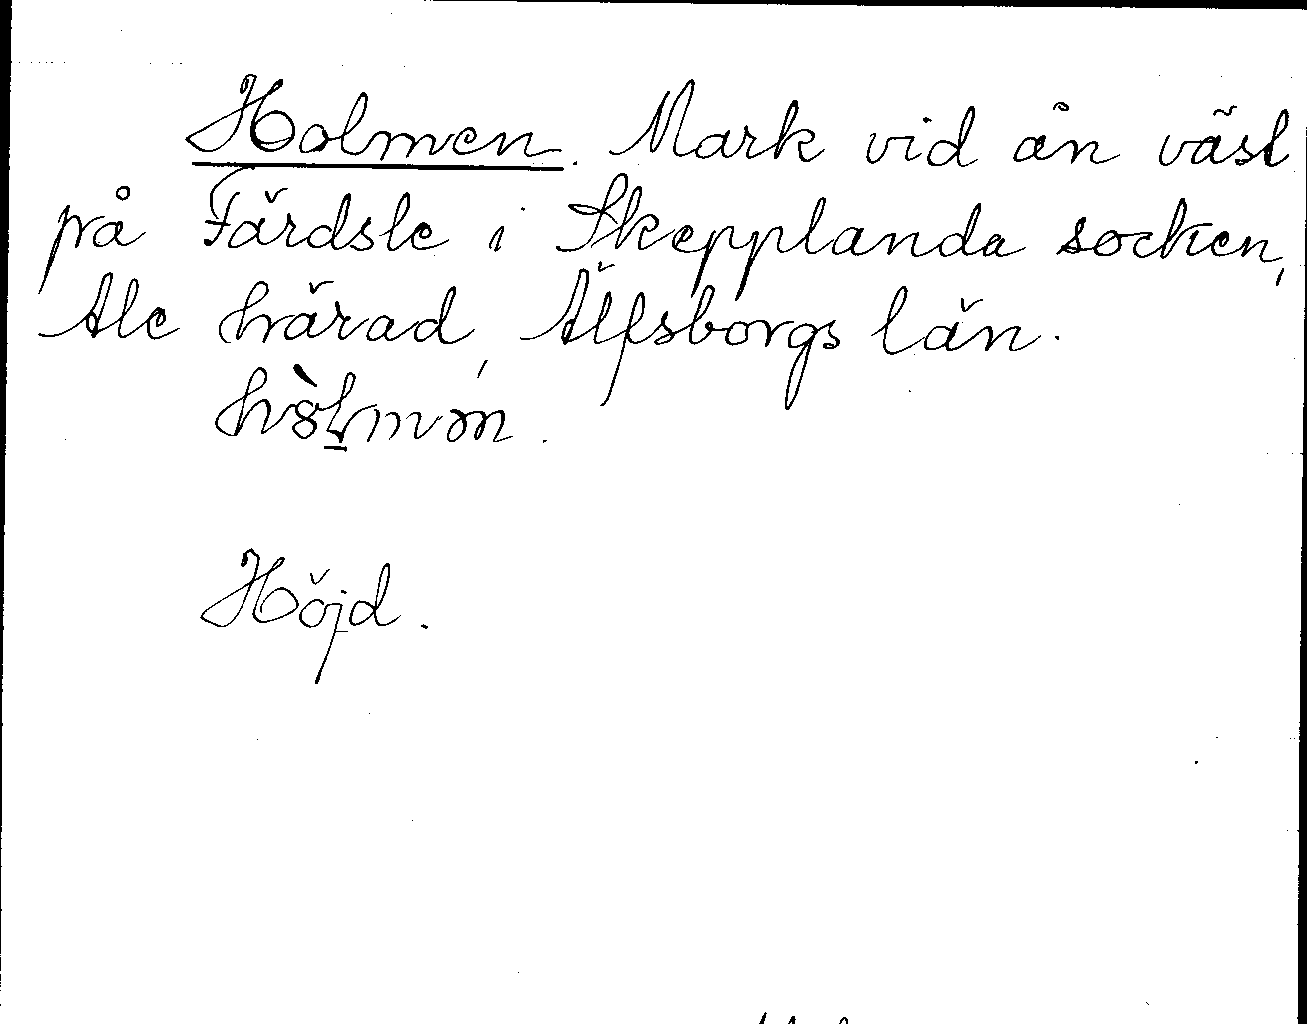 Holmen. Mark vid ån väst
på Färdsle i Skepplanda socken,
Ale härad, Älfsborgs län.
Höjd.